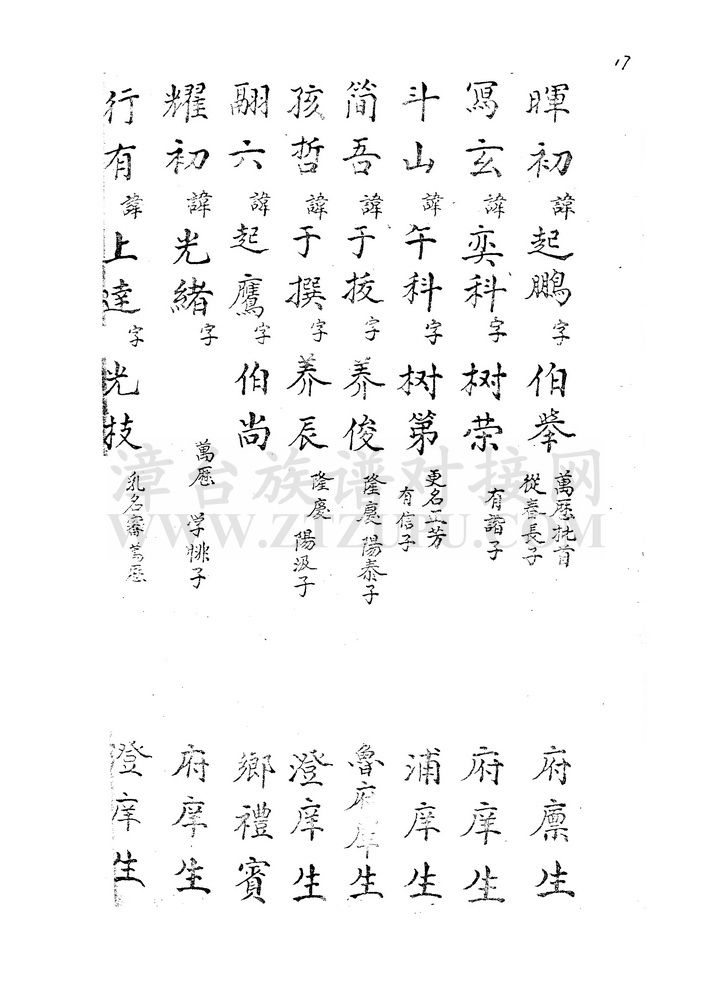 17
暉初諱起鵬字伯舉 萬歷批首 從春長子 府廪生
冩玄諱奕科字树荣 有諧子 府庠生
斗山諱午科字树第 更名工芳 有信子 浦庠生
简吾諱于拔字养俊 隆慶 陽泰子 府庠生
孩哲諱于撰字养辰 隆慶 陽汲子 澄庠生
翮六諱起鷹字伯尚 鄉禮賓
耀初諱光緒字 萬歷 学 子 府庠生
行有諱上達字光技 乳名審萬歷 澄庠生
漳台族谱对接网
WWW.ZTZUPU.COM